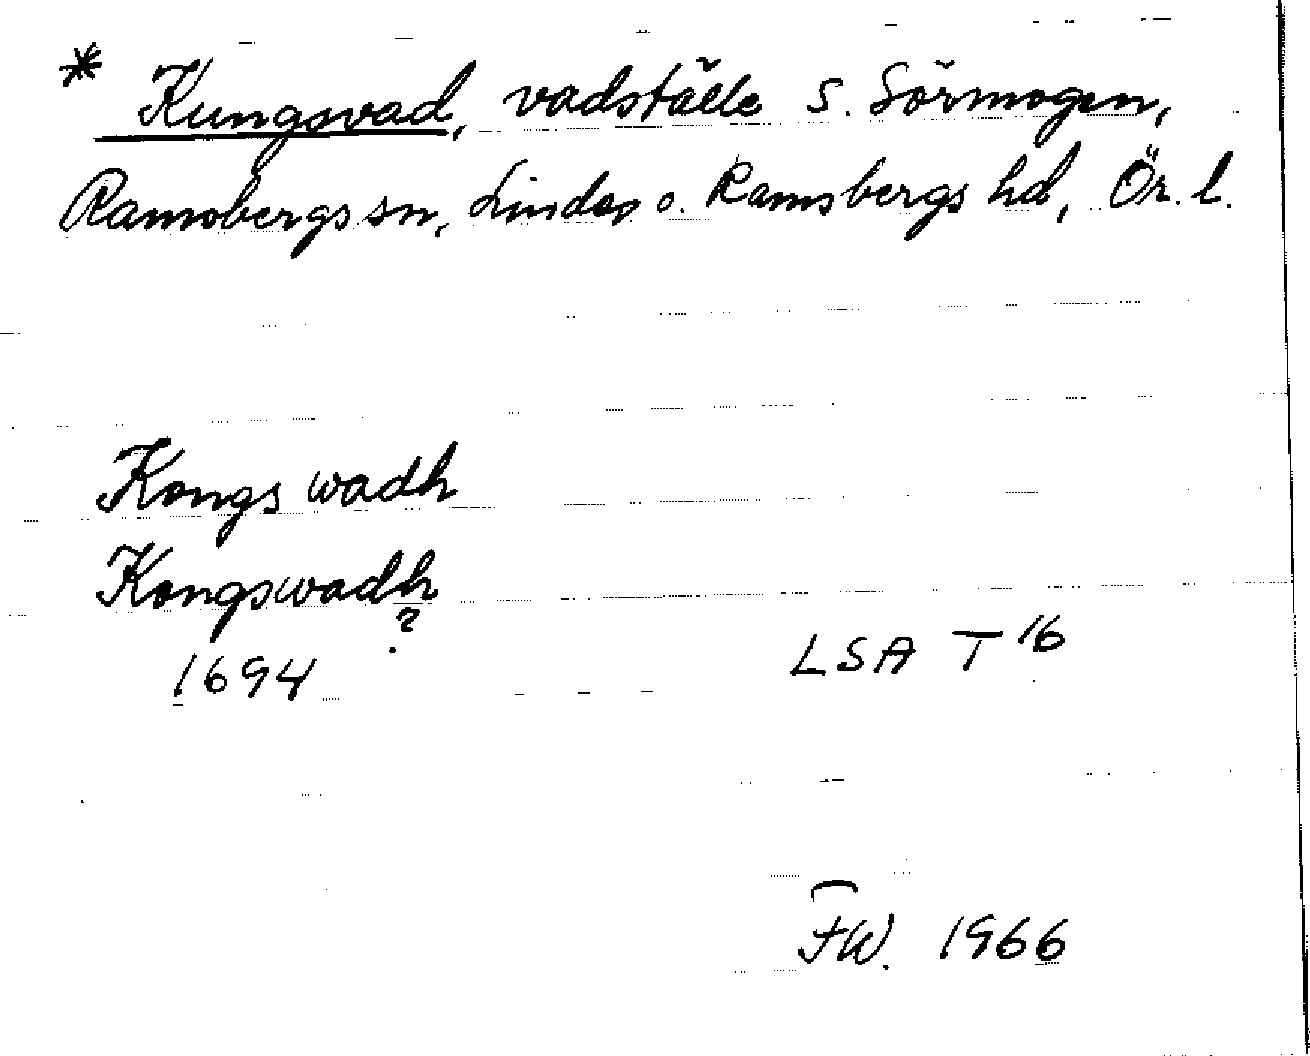 * Kungsvad, vadställe S. Sörmogen,
Ramsbergs sn, Lindes o. Ramsbergs hd, Ör. l.
Kongs wadh
Kongswadh
?
1694 LSA T 16
FW. 1966